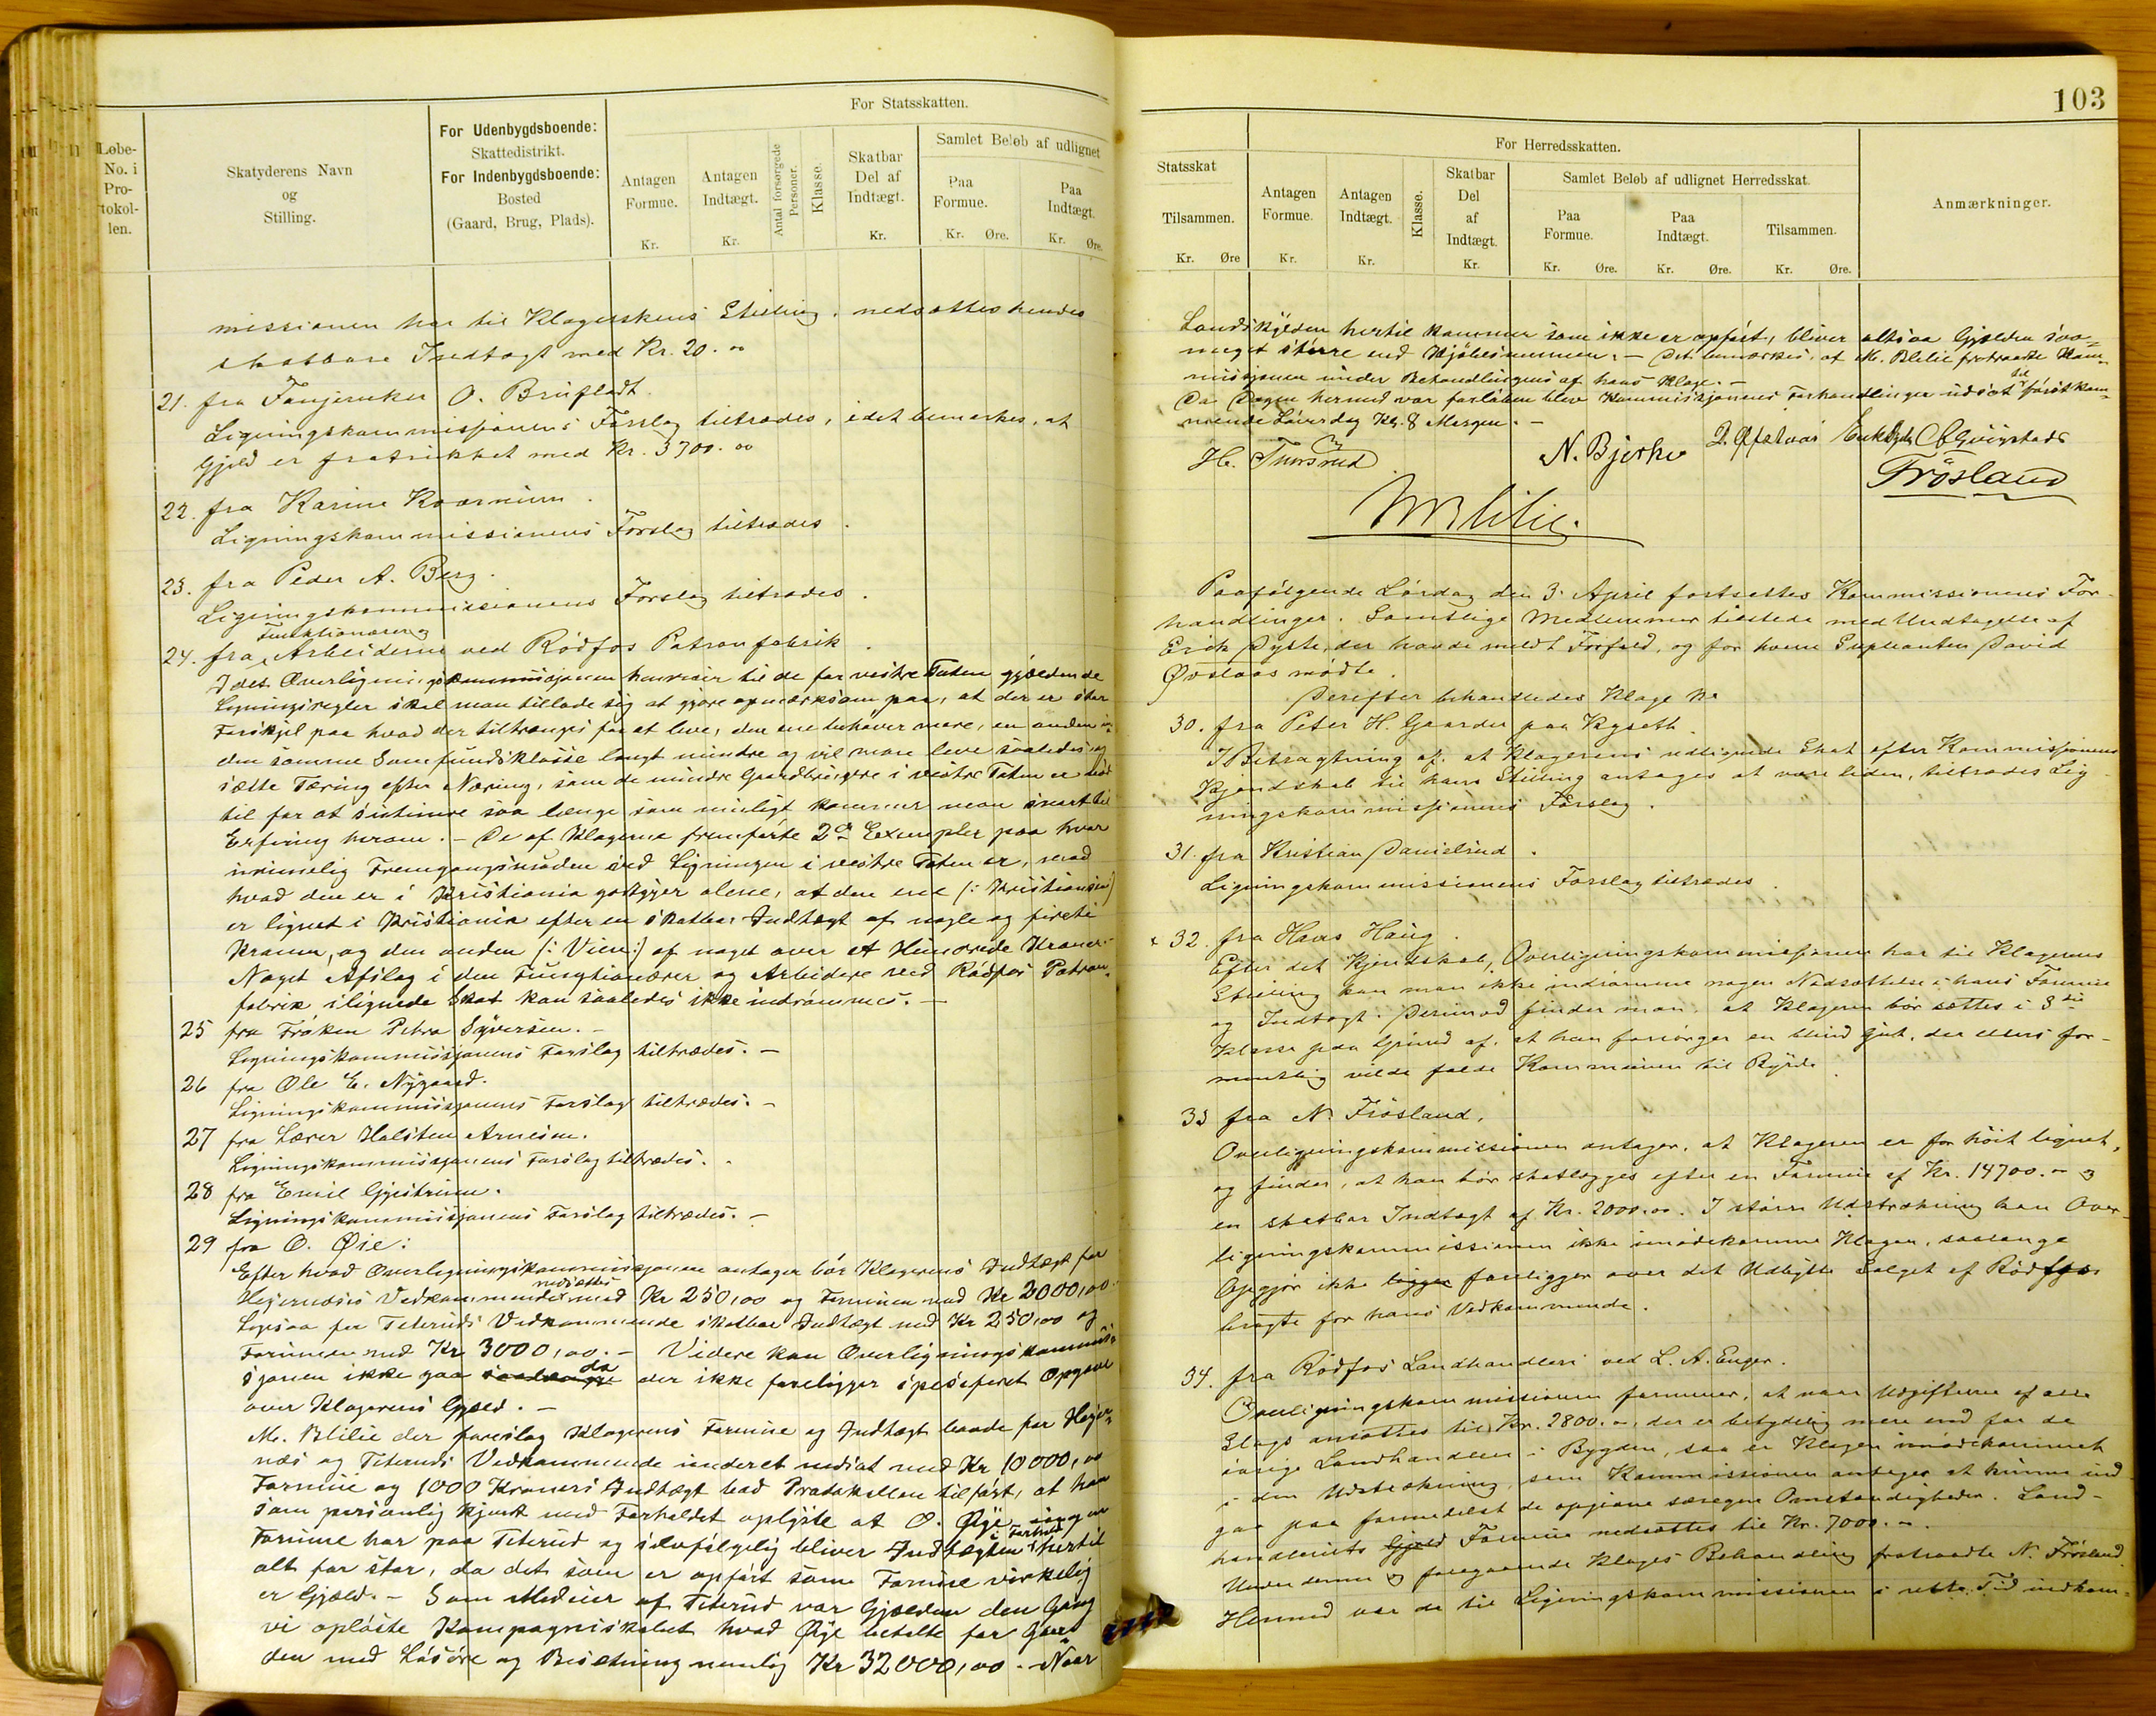 Løbe-
No. i
Pro-
tokol-
len.
Skatyderens Navn
og
Stilling.
For Udenbygdsboende:
Skattedistrikt.
For Indenbygdsboende:
Bosted
(Gaard, Brug, Plads).
For Statsskatten.
Antagen
Formue.
Kr.
Antagen
Indtægt.
Kr.
Antal forsørgede
Personer.
Klasse.
Skatbar
Del af
Indtægt.
Kr.
Samlet Beløb af udlignet
Paa
Formue.
Kr. Øre.
Paa
Indtægt.
Kr. Øre.
missionen har til Klagerskens Stilling, nedsættes hendes
skatbare Indtægt med Kr. 20.00
21. fra Fanejunker O. Brufladt.
Ligningskommissjonens Forslag tiltrædes, idet bemærkes, at
Gjeld er fratrukket med Kr. 3700.00
22. fra Karine Kværnum.
Ligningskommissionens Forslag tiltrædes.
23. fra Peder A. Berg.
Ligningskommissionens Forslag tiltrædes.
Funktionærer og
24. fra Arbeiderne ved Rödfos Patronfabrik.
Idet Overligningskommissjonen henviser til de for vestre Toten gjældende
Ligningsregler skal man tillade sig at gjøre opmærksom paa, at der er stor
Forskjel paa hvad der tiltrænges for at leve, den ene behøver mere, en anden i
den samme Samfundsklasse langt mindre og vil man leve saaledes og
sætte Tæring efter Næring, som de mindre Gaardbrugere i vestre Toten er nød
til for at subsistere saa længe som muligt kommer man snart til
Erfaring herom. – De af Klagerne fremførte 2de Exempler paa hvor
urimelig Fremgangsmaaden ved Ligningen i vestre Toten er, mod
hvad den er i Kristiania godtgjør alene, at den ene (: Kristiansen :)
er lignet i Kristiania efter en skatbar Indtægt af nogle og firti
Kroner, og den anden (: Vien :) af noget over et Hundrede Kroner. –
Noget Afslag i den Fungtionærer og Arbeidere ved Rødfos Patron-
fabrik ilignede Skat kan saaledes ikke indrømmes. –
25 fra Frøken Petra Syversen. –
Ligningskommissjonens Forslag tiltrædes. –
26 fra Ole E. Nygaard.
Ligningskommissjonens Forslag tiltrædes. –
27 fra Lærer Halsten Arnesen.
Ligningskommissjonens Forslag tiltrædes. –
28 fra Emil Gjestrum.
Ligningskommissjonens Forslag tiltrædes. –
29 fra O. Øie:
Efter hvad Overligningskommissjonen antager bør Klagerens Indtægt for
nedsættes
Hejernæs's Vedkommende med Kr 250,00 og Formuen med Kr 2000,00.
Ligesaa for Teteruds Vedkommende skatbar Indtægt med Kr 250,00 og
Formuen med Kr 3000,00. – Videre kan Overligningskommis-
da
sjonen ikke gaa saalænge der ikke foreligger speciferet Opgave
over Klagerens Gjæld. –
M. Blilie der foreslog Klagerens Formue og Indtægt baade for Hejer-
næs og Teteruds Vedkommende underet nedsat med Kr 10000,00
Formue og 1000 Kroners Indtægt bad Protokollen tilført, at han
som personlig kjendt med Forholdet oplyste at O. Øje ingen
i Forhold
Formue har paa Teterud og selvfølgelig bliver Indtægten hertil
alt for stor, da det som er opført som Formue virkelig
er Gjæld. – Som Medeier af Teterud var Gjælden den Gang
vi opløste Kompagniskabet hvad Øje betalte for Gaar-
den med Løsøre og Besætning nemlig Kr 32000,00. – Naar
103
Statsskat
Tilsammen.
Kr. Øre
For Herredsskatten.
Antagen
Formue.
Kr.
Antagen
Indtægt.
Kr.
Klasse.
Skatbar
Del
af
Indtægt.
Kr.
Samlet Beløb af udlignet Herredsskat.
Paa
Formue.
Kr. Øre.
Paa
Indtægt.
Kr. Øre.
Tilsammen.
Kr. Øre.
Anmærkninger.
Landskylden hertil kommer som ikke er opført, bliver altsaa Gjælden saa-
meget større end Kjøbesummen. – Det bemærkes, at M. Blilie fratraadte Kom-
missjonen under Behandlingen af hans Klage. –
til
Da Dagen hermed var forløben blev Kommissjonens Forhandlinger udsat førstkom-
mende Løverdag Kl. 8 Morgen. –
H. Thorsrud
N. Bjerke
Frösland
M Blilie.
Paafölgende Lördag den 3. April fortsattes Kommissionens For-
handlinger. Samtlige Medlemmer tilstede med Undtagelse af
Erik Dyste, der havde meldt Forfald, og for hvem Supleanten David
Øvstaas mödte.
Derefter behandledes Klage No
30. fra Peter H. Gaarder paa Ryseth.
I Betragtning af, at Klagerens udlignede Skat efter Kommissjonens
Kjendskab til hans Stilling antages at være liden, tiltrædes Lig
ningskommissjonens Forslag.
31. fra Kristian Danielsrud.
Ligningskommissionens Forslag tiltrædes.
x 32. fra Hans Haug.
Efter det Kjendskab, Overligningskommissjonen har til Klagerens
Stilling kan man ikke indrömme nogen Nedsættelse i hans Formue
og Indtægt. Derimod finder man, at Klageren bör sættes i 3die
Klasse paa Grund af, at han forsörger en blind Gut, der ellers for-
mentlig vilde falde Kommunen til Byrde.
33 fra N. Frösland.
Overligningskommissionen antager, at Klageren er for höit lignet,
og finder, at han bör skatlægges efter en Formue af Kr. 14700.00 og
en skatbar Indtægt af Kr. 2000.00. I större Udstrækning kan Over-
ligningskommissionen ikke imödekomme Klagen, saalænge
Opgjör ikke ligger foreligger over det Udbytte Salget af Rödfos
bragte for hans Vedkommende.
34. fra Rödfos Landhandleri ved L. A. Enger.
Overligningskommissionen formener, at naar Udgifterne af alle
Slags ansættes til Kr. 2800.00, der er betydelig mere end for de
övrige Landhandlere i Bygden, saa er Klagen imödekommet
i den Udstrækning, som Kommissionen antager at kunne ind
gaa paa formedelst de opgivne særegne Omstændigheder. Land-
handleriets Gjeld Formue nedsættes til Kr. 7000.00.
Under denne og foregaaende Klages Behandling fratraadte N. Frösland.
Hermed var de til Ligningskommissionen i rette Tid indkom-